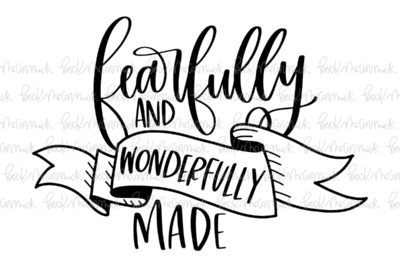 fearfully
AND
WONDERFULLY
MADE